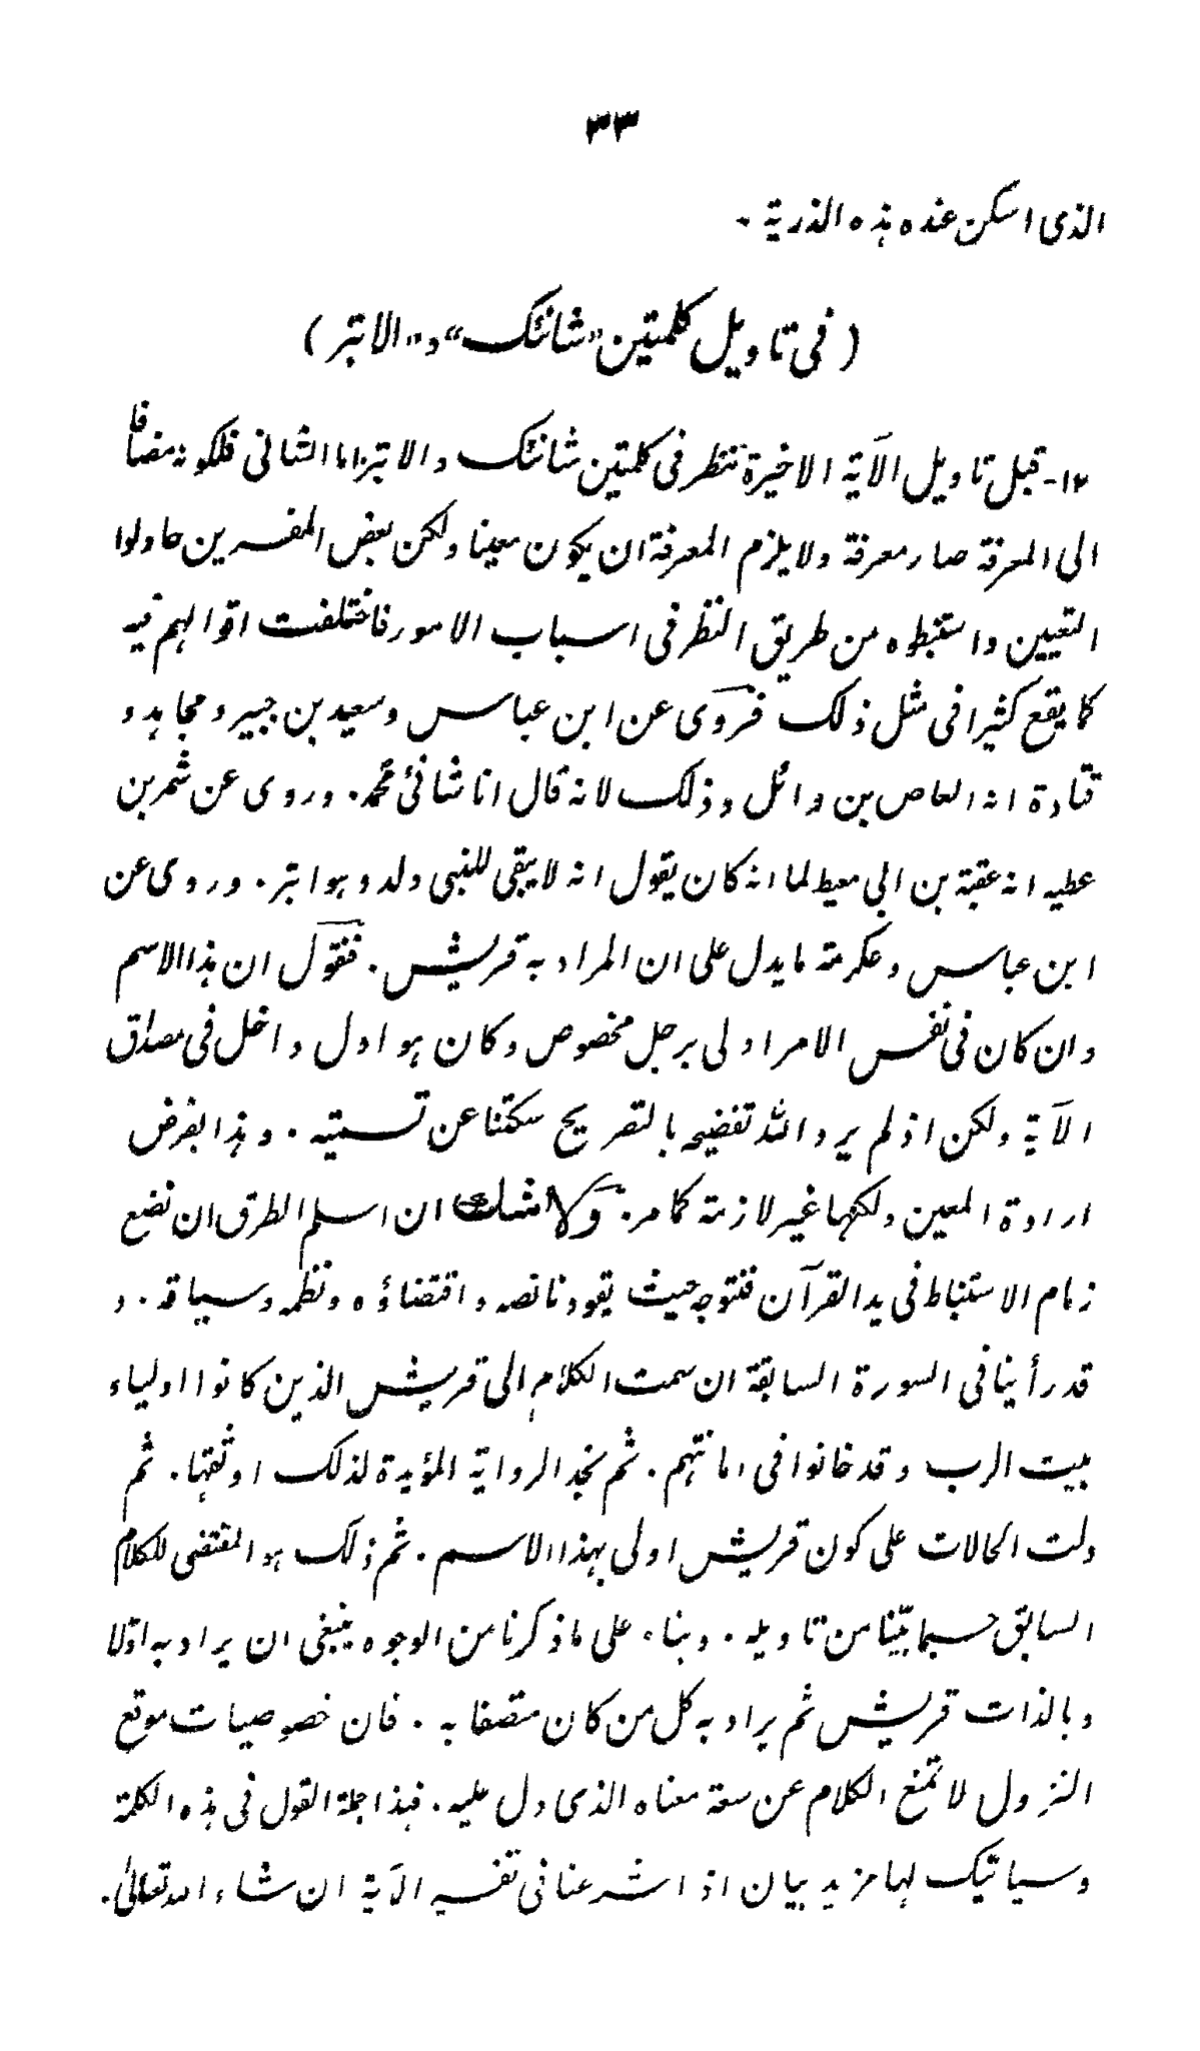 ٣٣
الذی اسکن عنده ہذه الذرية ۔
( فی تاویل کلمتین "شانئک" و"الابتر )
١٢- قبل تاویل الآیة الاخیرة ننظر فی کلمتین شانئک والابتر اما الشانی فلکونہ مضافا
الی المعرفة صار معرفة ولایلزم المعرفة ان یکون معینا ولکن بعض المفسرین حاولوا
التعیین واستنبطوه من طریق النظر فی اسباب الامور فاختلفت اقوالہم فیہ
کما یقع کثیرا فی مثل ذلک فروی عن ابن عباس وسعید بن جبیر ومجاہد و
قتادة انہ العاص بن وائل وذلک لانہ قال انا شانئ محمد. وروی عن شمر بن
عطیہ انہ عقبة بن ابی معیط لما انہ کان یقول انہ لایبقی للنبی ولد وہوابتر. وروی عن
ابن عباس وعکرمة ما یدل علی ان المراد بہ قریش. فنقول ان ہذا الاسم
وان کان فی نفس الامر اولی برجل مخصوص وکان ہو اول داخل فی مصداق
الآیة ولکن اذ لم یرد الله تفضیحہ بالتصریح سکتنا عن تسمیتہ. وہذا بفرض
ارادة المعین ولکنہا غیر لازمة کما مر. ولاشک ان اسلم الطرق ان نضع
زمام الاستنباط فی ید القرآن فنتوجہ حیث یقودنا نصہ واقتضاؤه ونظمہ وسیاقہ. و
قد رأینا فی السورة السابقة ان سمت الکلام الی قریش الذین کانوا اولیاء
بیت الرب وقد خانوا فی امانتہم. ثم نجد الروایة المؤیدة لذلک اوثقہا. ثم
دلت الحالات علی کون قریش اولی بہذا الاسم. ثم ذلک ہو المقتضی للکلام
السابق حسبما بیّنا من تاویلہ. وبناء علی ماذکرنا من الوجوه ینبغی ان یراد بہ اوّلا
وبالذات قریش ثم یراد بہ کل من کان متصفا بہ. فان خصوصیات موقع
النزول لاتمنع الکلام عن سعة معناه الذی دل علیہ. فہذا جملة القول فی ہذه الکلمة
وسیاتیک لہا مزید بیان اذا شرعنا فی تفسیر الآیة ان شاء الله تعالیٰ.